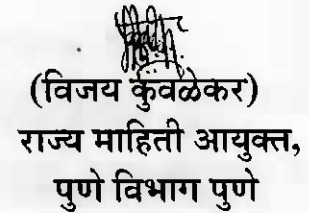 (विजय कुवळेकर)
राज्य माहिती आयुक्त,
पुणे विभाग पुणे